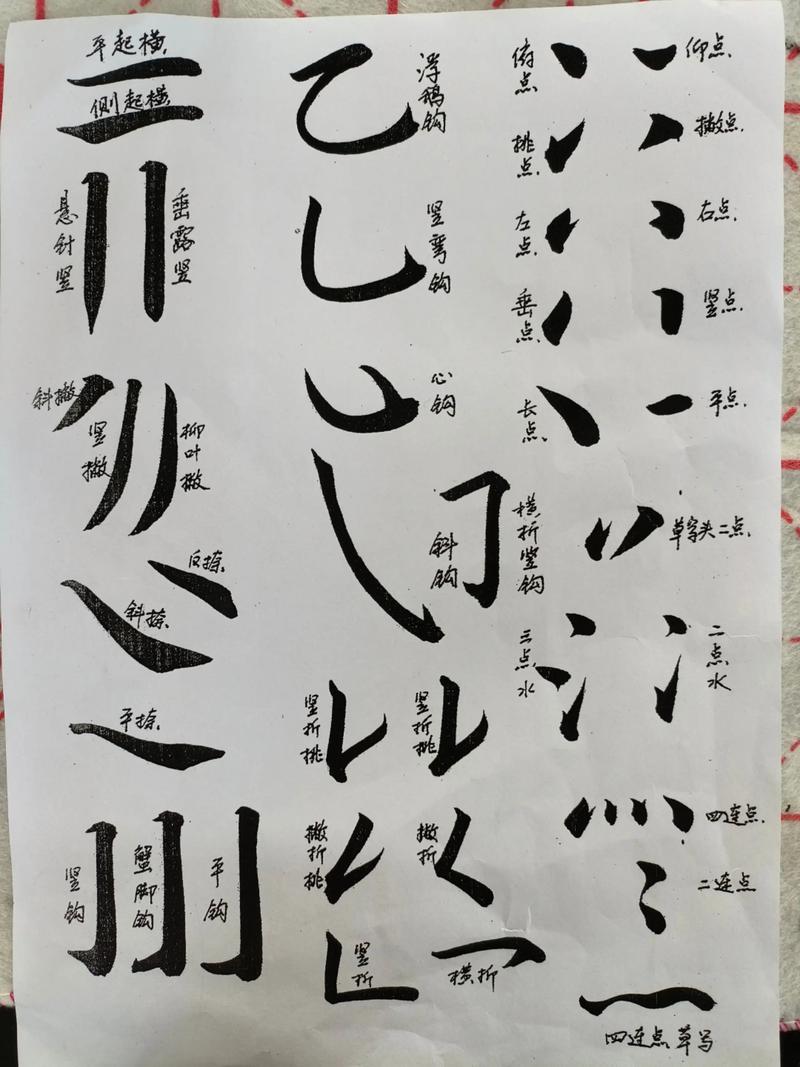 平起横
侧起横
悬针竖
垂露竖
斜撇
竖撇
柳叶撇
反捺
斜捺
平捺
竖钩
蟹脚钩
平钩
浮鹅钩
竖弯钩
心钩
斜钩
横折竖钩
竖折挑
竖折挑
撇折挑
撇折
竖折
横折
俯点
仰点
挑点
撇点
左点
右点
垂点
竖点
长点
平点
草字头二点
三点水
二点水
四连点
二连点
四连点草写